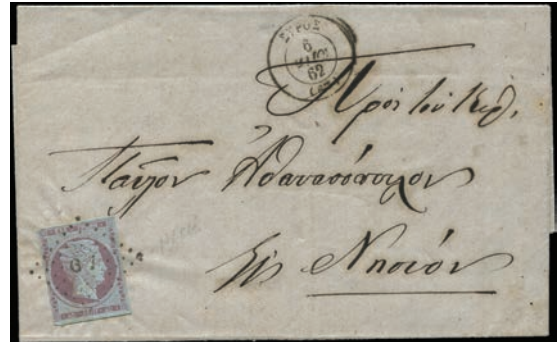 ΣΥΡΟΣ
6
62
Πρὸς τὸν Κύρ.
Παῦλον Ἀθανασόπουλον
Εἰς Νησίον
67